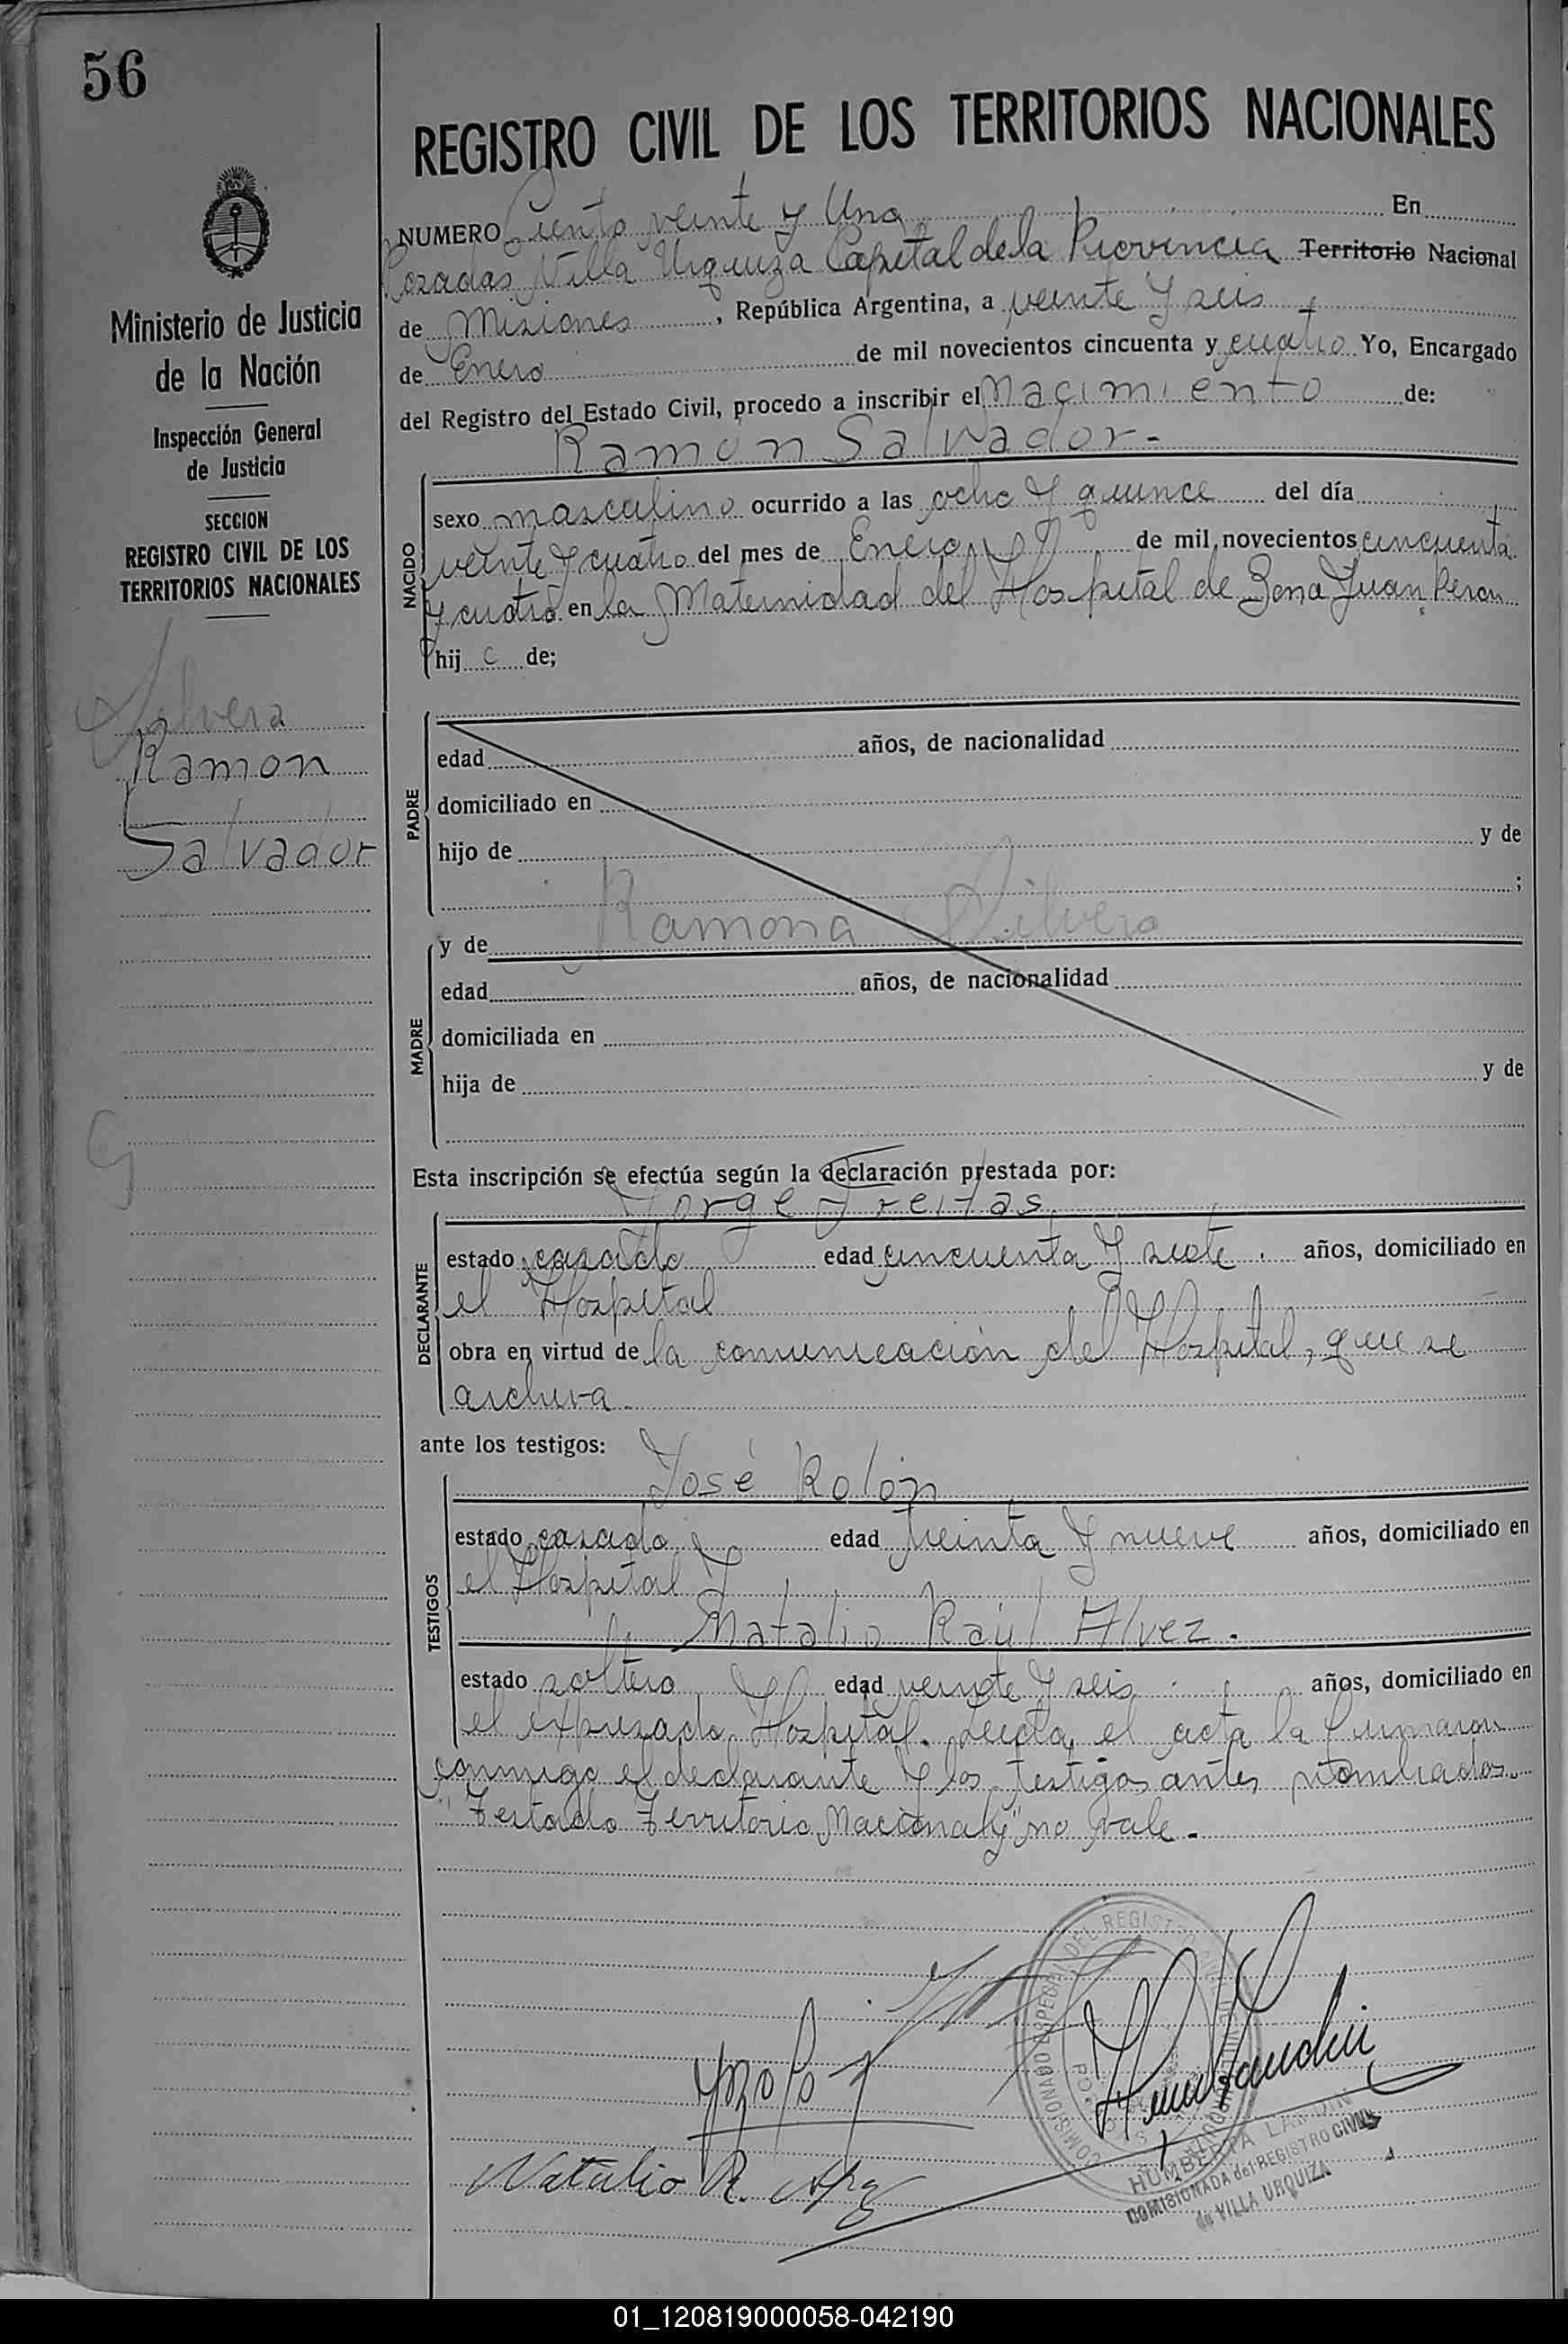 56
REGISTRO CIVIL DE LOS TERRITORIOS NACIONALES
NUMERO Ciento veinte y Una En
Posadas Villa Urquiza Capital de la Provincia Territorio Nacional
de Misiones, República Argentina, a veinte y seis
de Enero de mil novecientos cincuenta y cuatro Yo, Encargado
del Registro del Estado Civil, procedo a inscribir el Nacimiento de:
Ramón Salvador.-
NACIDO
sexo masculino ocurrido a las ocho y quince del día
veinte y cuatro del mes de Enero de mil novecientos cincuenta
y cuatro en la Maternidad del Hospital de Zona Juan Peron
hijo de;
PADRE
edad años, de nacionalidad
domiciliado en
hijo de y de
;
MADRE
y de Ramona Silvera
edad años, de nacionalidad
domiciliada en
hija de y de
Esta inscripción se efectúa según la declaración prestada por:
Jorge Freitas
DECLARANTE
estado casado edad cincuenta y siete años, domiciliado en
el Hospital
obra en virtud de la comunicación del Hospital, que se
archiva.
ante los testigos:
José Rolón
TESTIGOS
estado casado edad treinta y nueve años, domiciliado en
el Hospital y
Natalio Raúl Alvez.
estado soltero edad veinte y seis años, domiciliado en
el expresado Hospital. Leída el acta la firmaron
conmigo el declarante y los testigos antes nombrados.
"Testado Territorio Nacional" no vale.-
Ministerio de Justicia
de la Nación
Inspección General
de Justicia
SECCION
REGISTRO CIVIL DE LOS
TERRITORIOS NACIONALES
Silvera
Ramon
Salvador
Natalio R.
HUMBERTA LANDIN
COMISIONADA del REGISTRO CIVIL
de VILLA URQUIZA
01_120819000058-042190